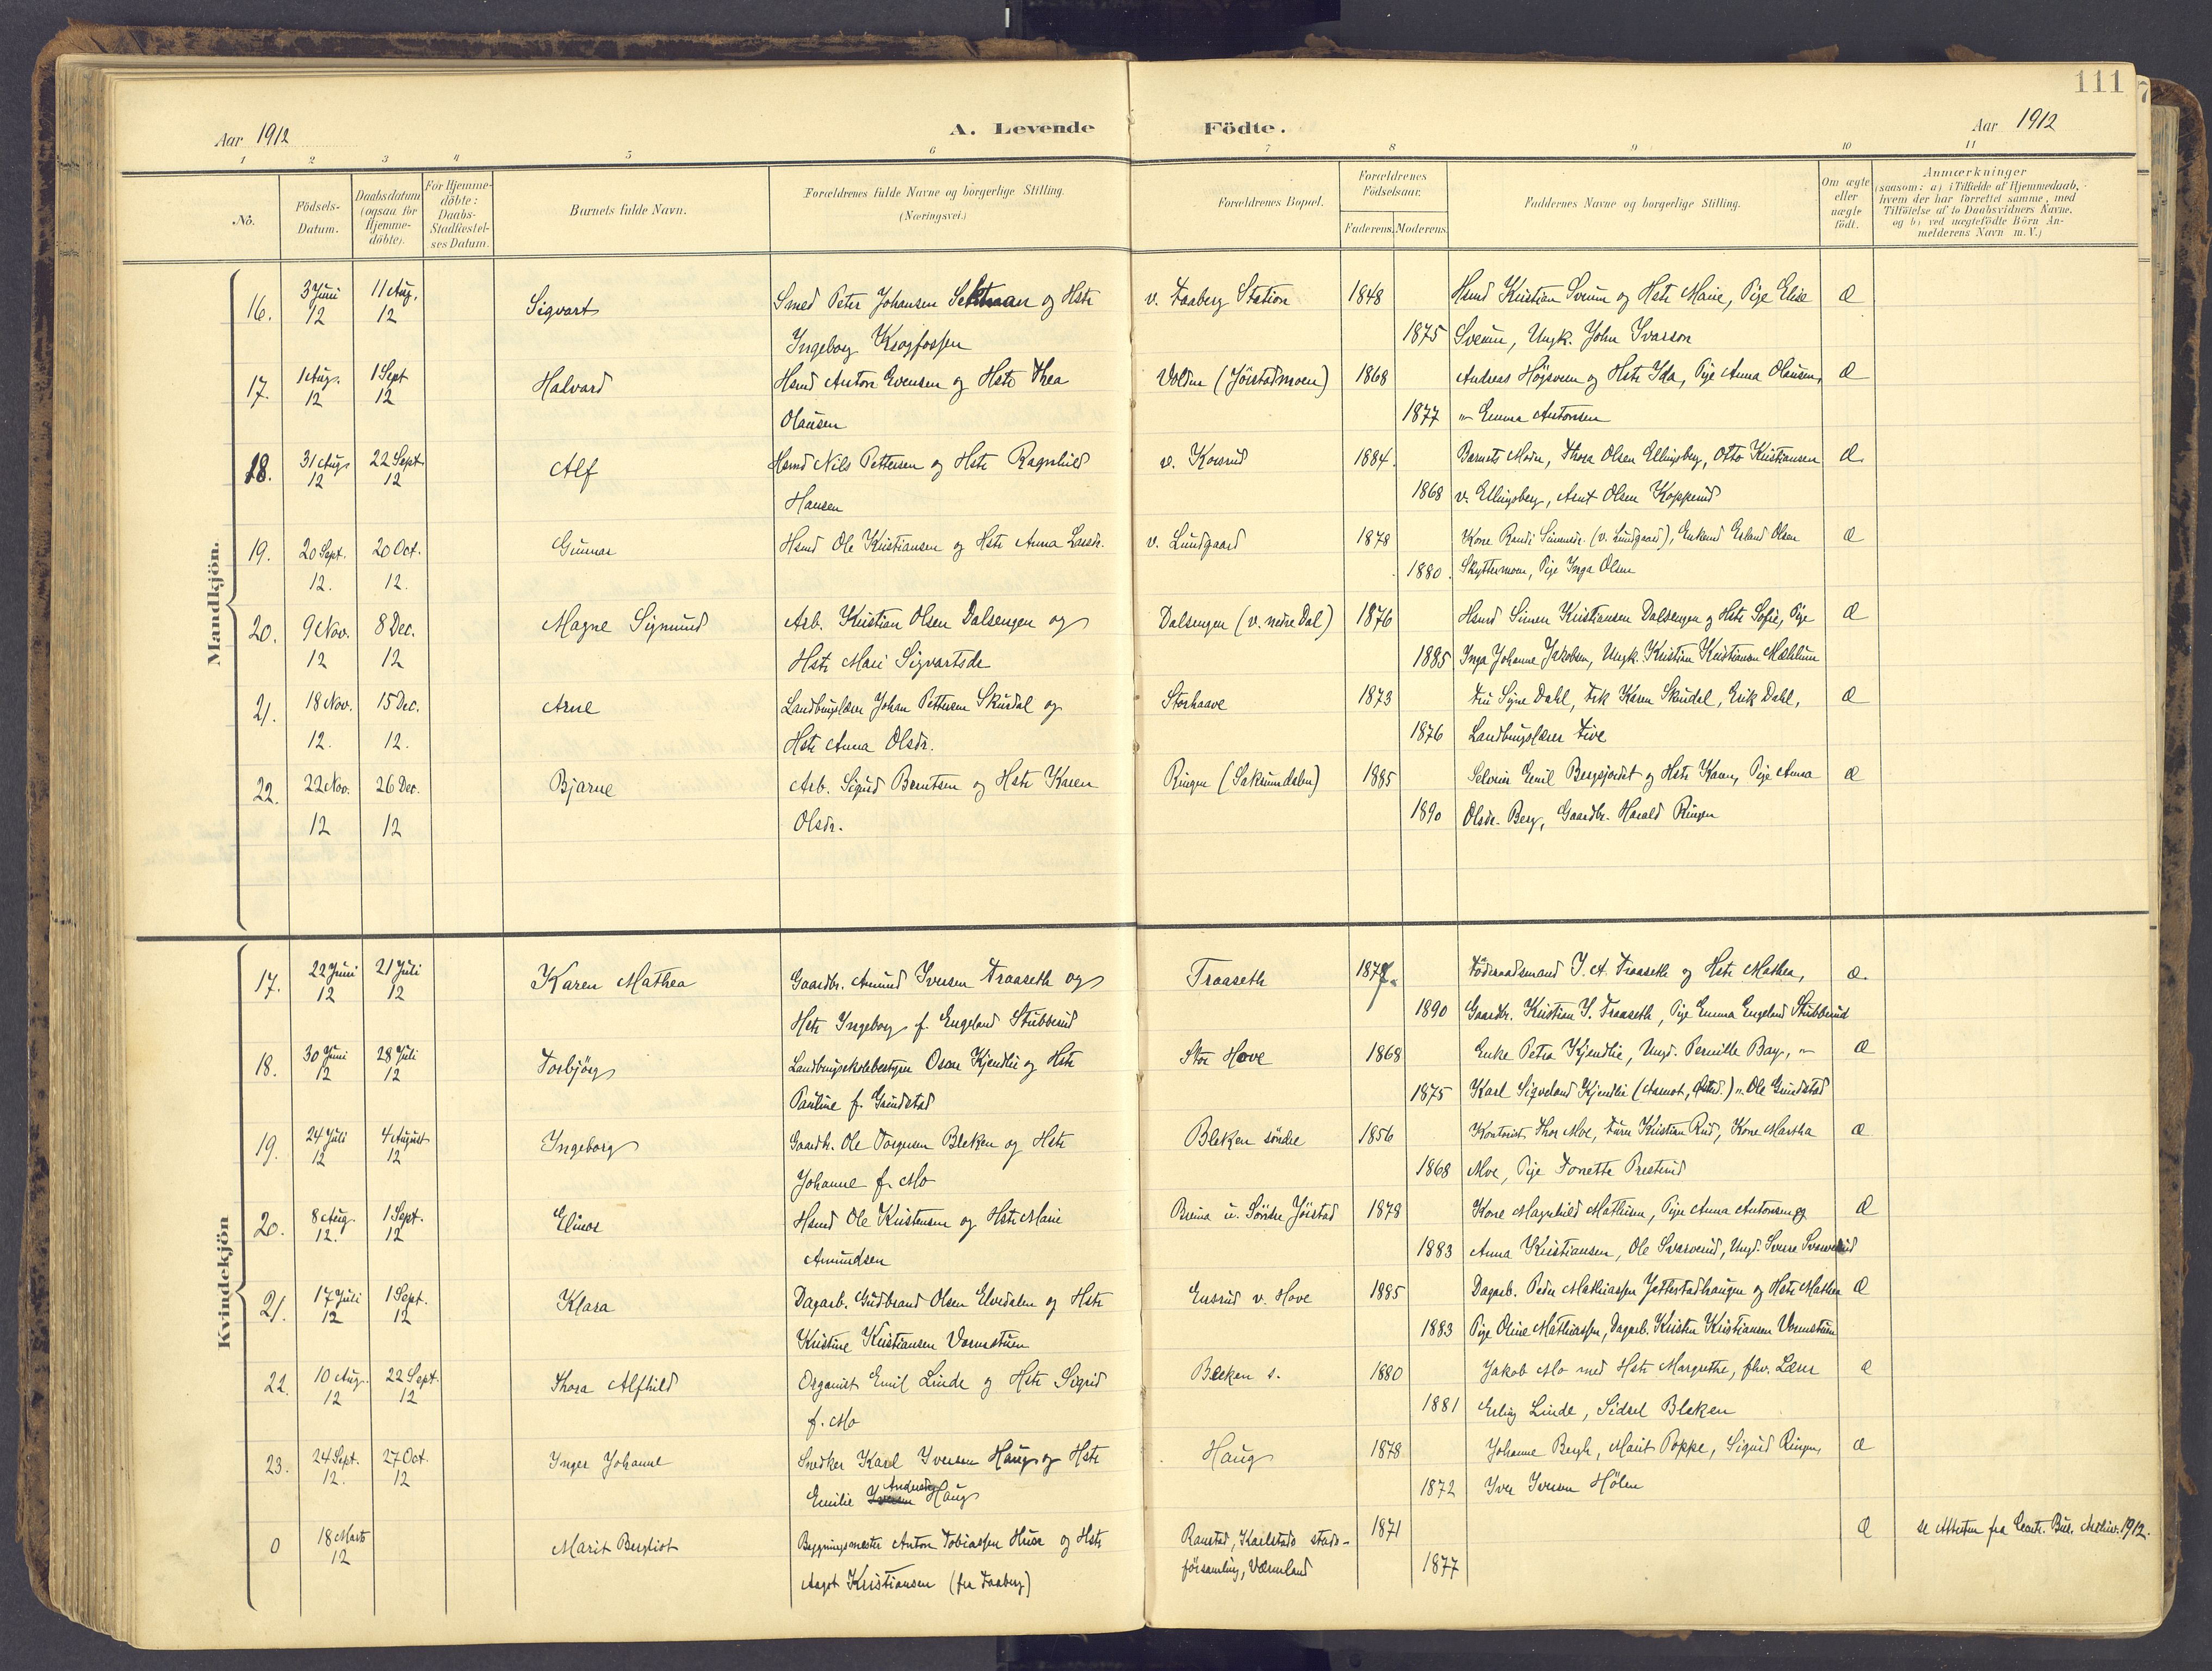 111
Aar 1912
A. Levende Födte.
Aar 1912
1 2 3 4 5 6 7 8 9 10 11
No.
Födsels-Datum.
Daabsdatum (ogsaa for Hjemme-döbte).
For Hjemme-döbte: Daabs-Stadfæstel-ses Datum.
Barnets fulde Navn.
Forældrenes fulde Navne og borgerlige Stilling.
(Næringsvei.)
Forældrenes Bopæl.
Forældrenes Födselsaar.
Faderens. Moderens.
Faddernes Navne og borgerlige Stilling.
Om ægte eller uægte födt.
Anmærkninger
(saasom: a) i Tilfælde af Hjemmedaab,
hvem der har forrettet samme, med
Tilföielse af to Daabsvidners Navne,
og b) ved uægtefödte Börn An-
melderens Navn m. V.)
Mandkjön.
16. 3 Juni 12 11 Aug. 12 Sigvart Smed Peter Johansen og Hstr v. Faaberg Station 1848 Hsmd Kristian Sveum og Hstr Marie, Pige Elise Æ
Ingeborg Krogfossen 1875 Sveum, Ungk. John Ivarson
17. 1 Aug. 12 1 Sept 12 Halvard Hsmd Anton Evensen og Hstr Thea Volden (Jörstadmoen) 1868 Andreas Högsveen og Hstr Ida, Pige Anna Olausen, Æ
Olausen 1877 " Emma Antonsen
18. 31 Aug. 12 22 Sept. 12 Alf Hsmd Nils Pettersen og Hstr Ragnhild v. Korsrud 1884. Barnets Moder, Thora Olsen Ellingsberg, Otto Kristiansen Æ.
Hansen 1868 v. Ellingsberg, Arnt Olsen Kopperud
19. 20 Sept. 12. 20 Oct. 12. Gunnar Hsmd Ole Kristiansen og Hstr Anna Larsdr. v. Lundgaard 1878 Kone Randi Simensdr. (v. Lundgaard), Enkemd Erland Olsen Æ
1880. Skyttermoen, Pige Inga Olsen
20. 9 Nov. 12 8 Dec. 12 Magne Sigmund Arb. Kristian Olsen Dalsengen og Dalsengen (v. nedre Dal) 1876 Hsmd Simen Kristiansen Dalsengen og Hstr Sofie, Pige Æ
Hstr Mari Sigvartsdr 1885 Inga Johanne Jakobsen, Ungk. Kristian Kristiansen Mæhlum
21. 18 Nov. 12. 15 Dec. 12. Arne Landbrugslærer Johan Pettersen Skurdal og Storhaave 1873 Fru Signe Dahl, Frk Karen Skurdal, Erik Dahl, Æ
Hstr Anna Olsdr. 1876 Landbrugslærer Five
22. 22 Nov. 12 26 Dec. 12 Bjarne Arb. Sigurd Berntsen og Hstr Karen Ringen (Saksumdalen) 1885 Selveier Emil Bergsjordet og Hstr Karen, Pige Anna Æ
Olsdr. 1890 Olsdr. Berg, Gaardbr. Harald Ringen
Kvindekjön
17. 22 Juni 12 21 Juli 12 Karen Mathea Gaardbr. Amund Iversen Traaseth og Traaseth Föderaadsmand I. A. Traaseth og Hstr Mathea, Æ.
Hstr Ingeborg f. Engeland Stubberud 1890 Gaardbr. Kristian I. Traaseth, Pige Emma Engeland Stubberud
18. 30 Juni 12 28 Juli 12 Torbjörg Landbrugsskolebestyrer Oscar Kjendlie og Hstr Stor Hove 1868 Enke Petra Kjendlie, Ungd. Pernille Bay, " Æ
Pauline f. Grindstad 1875 Karl Sigveland Kjendlie (Aamot, ) " Ole Grundstad
19. 24 Juli 12 4 August 12 Ingeborg Gaardbr. Ole Torgersen Bleken og Hstr Bleken söndre 1856 Kontorist Thor Moe, Kristian Rud, Kone Martha Æ
Johanne f. Mo 1868 Moe, Pige Tonette Presterud
20. 8 Aug. 12. 1 Sept. 12 Elinor Hsmd Ole Kristensen og Hstr Marie Breina u. Söndre Jörstad 1878 Kone Magnhild Mathisen, Pige Anna Antonsen og Æ
Amundsen 1883 Anna Kristiansen, Ole Svarverud, Ungd. Sverre Svarverud
21. 17 Juli 12 1 Sept. 12 Klara Dagarb. Gudbrand Olsen Elvedalen og Hstr Ensrud v. Hove 1885 Dagarb. Peder Mathiassen Jettestadhaugen og Hstr Mathea Æ
Kristine Kristiansen Vormstuen 1883 Pige Oline Mathiassen, Dagarb. Kristen Kristiansen Vormstuen
22. 10 Aug. 12 22 Sept. 12 Thora Alfhild Organist Emil Linde og Hstr Sigrid Bleken s. 1880 Jakob Mo med Hstr Margrethe, fhv. Lærer Æ
f. Mo 1881 Erling Linde, Sidsel Bleken
23. 24 Sept. 12. 27 Oct. 12 Inger Johanne Snedker Karl Iversen Haug og Hstr Haug 1878 Johanne Bergh, Marit Poppe, Sigurd Ringen, Æ
Emilie Andersen Haug 1872 Iver Iversen Hölen
0 18 Marts 12 Marit Bergliot Bygningsmester Anton Tobiassen Huse og Hstr Ranstad, Karlstads stads- 1871 Æ se Attesten fra Centr. Bur. Arkiv. 1912.
Aagot Kristiansen (fra Faaberg) församling, Værmland 1877